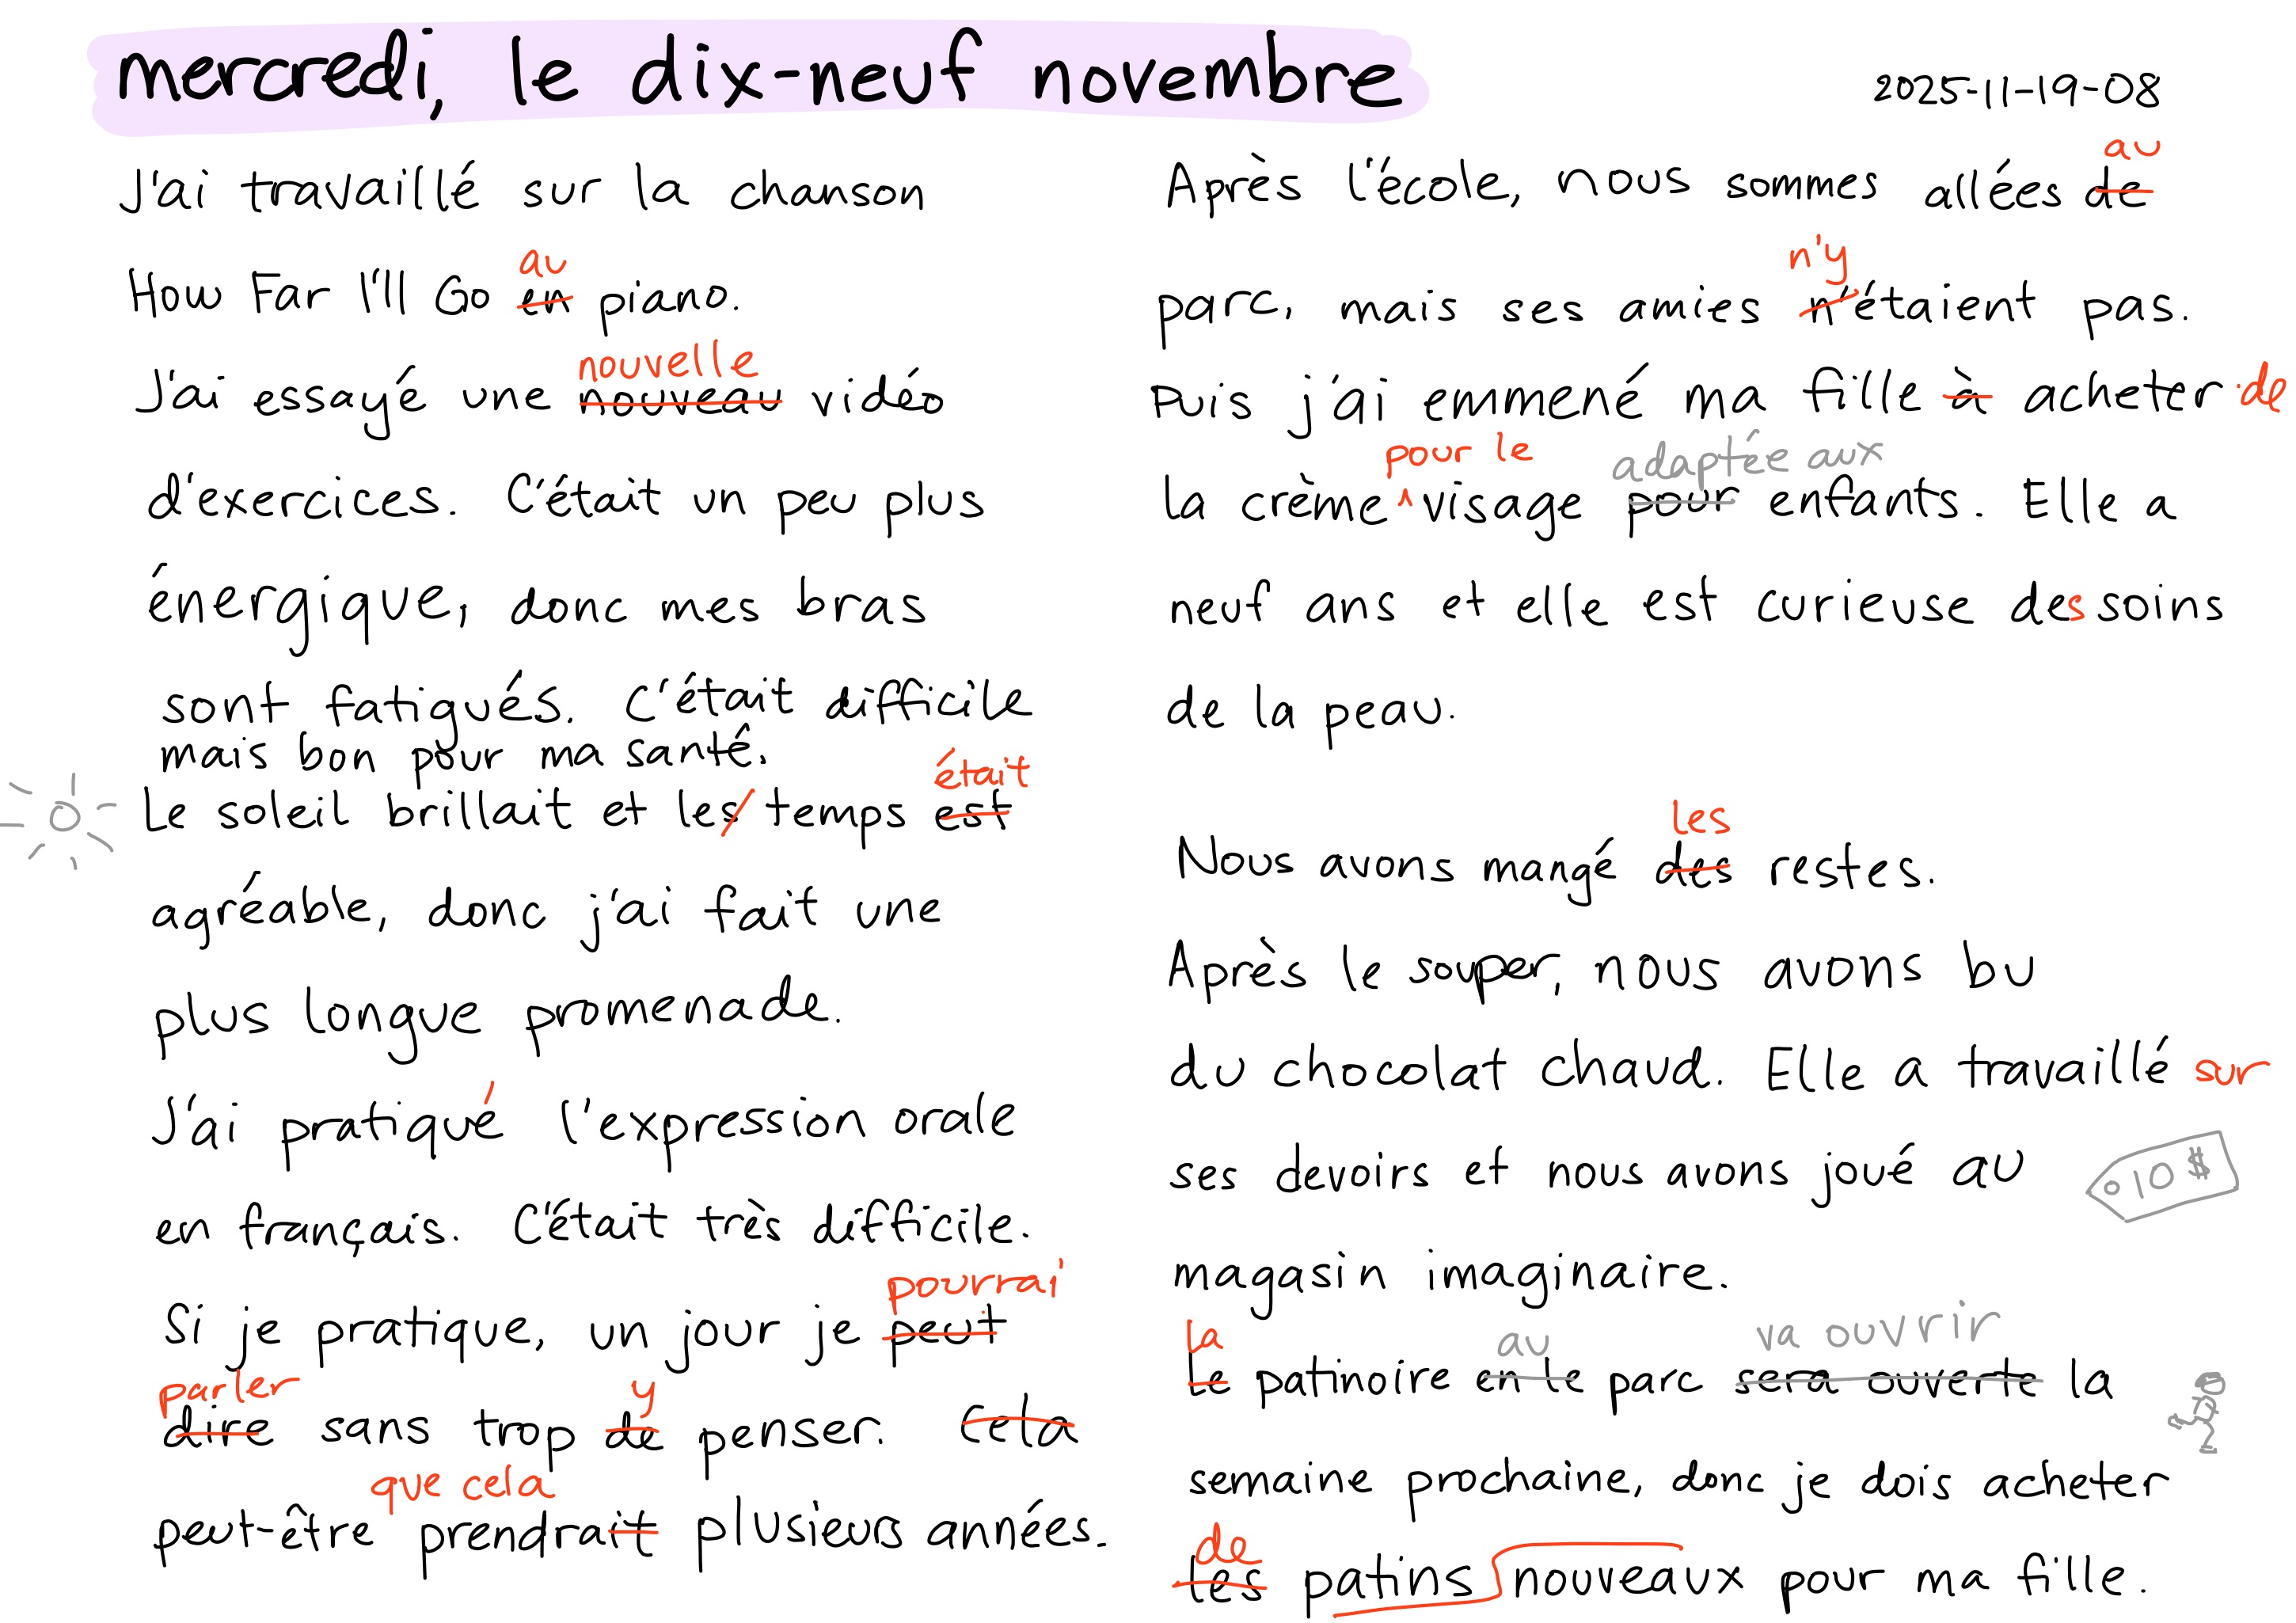 mercredi, le dix-neuf novembre
2025-11-19-08
J'ai travaillé sur la chanson
au
How Far I'll Go en piano.
nouvelle
J'ai essayé une nouveau vidéo
d'exercices. C'était un peu plus
énergique, donc mes bras
sont fatigués. C'était difficile
mais bon pour ma santé.
était
Le soleil brillait et les temps est
agréable, donc j'ai fait une
plus longue promenade.
J'ai pratiqué l'expression orale
en français. C'était très difficile.
pourrai
Si je pratique, un jour je peut
parler y
dire sans trop de penser. Cela
que cela
peut-être prendrait plusieurs années.
au
Après l'école, nous sommes allées de
n'y
parc, mais ses amies n'étaient pas.
Puis j'ai emmené ma fille à acheter de
pour le adaptée aux
la crème visage pour enfants. Elle a
neuf ans et elle est curieuse des soins
de la peau.
les
Nous avons mangé des restes.
Après le souper, nous avons bu
du chocolat chaud. Elle a travaillé sur
ses devoirs et nous avons joué au
10 $
magasin imaginaire.
la au va ouvrir
Le patinoire en le parc sera ouverte la
semaine prochaine, donc je dois acheter
de
les patins nouveaux pour ma fille.